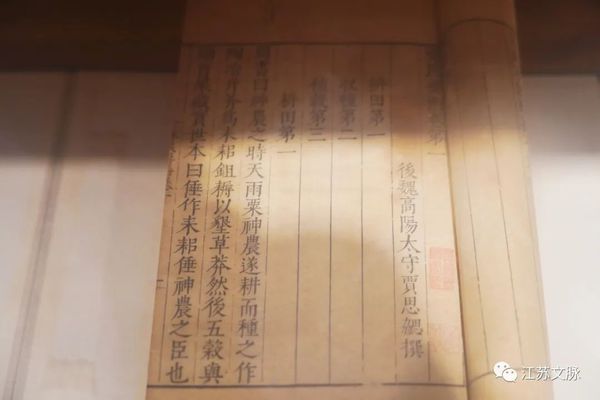 第一
後魏高陽太守賈思勰撰
耕田第一
收種第二
種穀第三
耕田第一
周書曰神農之時天雨粟神農遂耕而種之作
陶冶斤斧爲耒耜鉏耨以墾草莽然後五穀興
助百果藏實世本曰倕作耒耜倕神農之臣也
江苏文脉